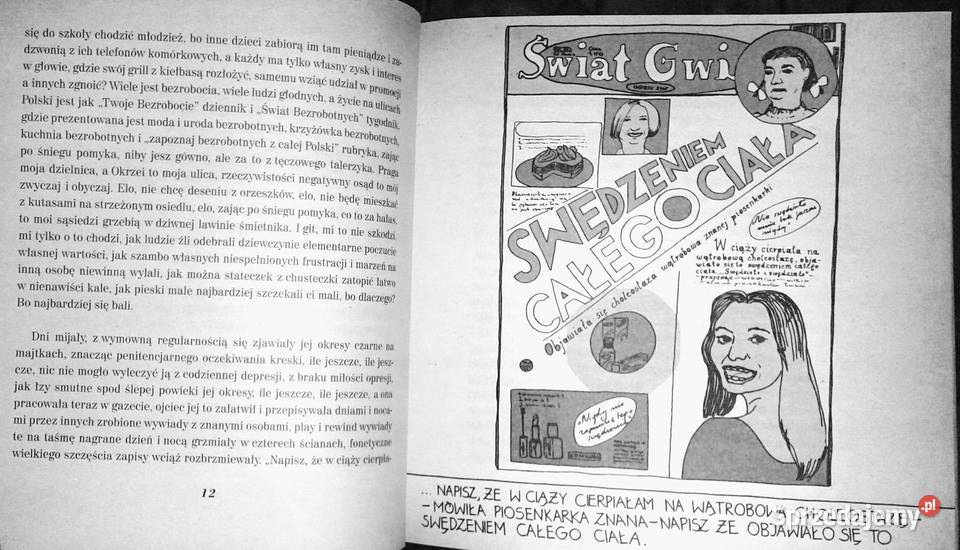 się do szkoły chodzić młodzież, bo inne dzieci zabiorą im tam pieniądze i za-
dzwonią z ich telefonów komórkowych, a każdy ma tylko własny zysk i interes
w głowie, gdzie swój grill z kiełbasą rozłożyć, samemu wziąć udział w promocji
a innych zgnoić? Wiele jest bezrobocia, wiele ludzi głodnych, a życie na ulicach
Polski jest jak „Twoje Bezrobocie” dziennik i „Świat Bezrobotnych” tygodnik,
gdzie prezentowana jest moda i uroda bezrobotnych, krzyżówka bezrobotnych,
kuchnia bezrobotnych i „zapoznaj bezrobotnych z całej Polski” rubryka, zając
po śniegu pomyka, niby jesz gówno, ale za to z tęczowego talerzyka. Praga
moja dzielnica, a Okrzei to moja ulica, rzeczywistości negatywny osąd to mój
zwyczaj i obyczaj. Elo, nie chcę deseniu z orzeszków, elo, nie będę mieszkać
z kutasami na strzeżonym osiedlu, elo, zając po śniegu pomyka, co to za hałas,
to moi sąsiedzi grzebią w dziwnej lawinie śmietnika. I git, mi to nie szkodzi,
mi tylko o to chodzi, jak ludzie źli odebrali dziewczynie elementarne poczucie
własnej wartości, jak szambo własnych niespełnionych frustracji i marzeń na
inną osobę niewinną wylali, jak można stateczek z chusteczki zatopić łatwo
w nienawiści kale, jak pieski małe najbardziej szczekali ci mali, bo dlaczego?
Bo najbardziej się bali.
Dni mijały, z wymowną regularnością się zjawiały jej okresy czarne na
majtkach, znacząc penitencjarnego oczekiwania kreski, ile jeszcze, ile jesz-
cze, nic nie mogło wyleczyć ją z codziennej depresji, z braku miłości opresji,
jak łzy smutne spod ślepej powieki jej okresy, ile jeszcze, ile jeszcze, a ona
pracowała teraz w gazecie, ojciec jej to załatwił i przepisywała dniami i noca-
mi przez innych zrobione wywiady z znanymi osobami, play i rewind wywiady
te na taśmę nagrane dzień i nocą grzmiały w czterech ścianach, fonetyczne
wielkiego szczęścia zapisy wciąż rozbrzmiewały. „Napisz, że w ciąży cierpia-
12
Świat Gwi
SWĘDZENIEM
CAŁEGO CIAŁA
Objawiała się cholestaza wątrobowa znanej piosenkarki
W ciąży cierpiała na
wątrobową cholestazę, obja-
wiało się to swędzeniem całego
ciała.
„Nigdy nie
zapomnę tego
swędzenia”
... NAPISZ, ŻE W CIĄŻY CIERPIAŁAM NA WĄTROBOWĄ
- MÓWIŁA PIOSENKARKA ZNANA - NAPISZ ŻE OBJAWIAŁO SIĘ TO
SWĘDZENIEM CAŁEGO CIAŁA.
Sprzedajemy.pl